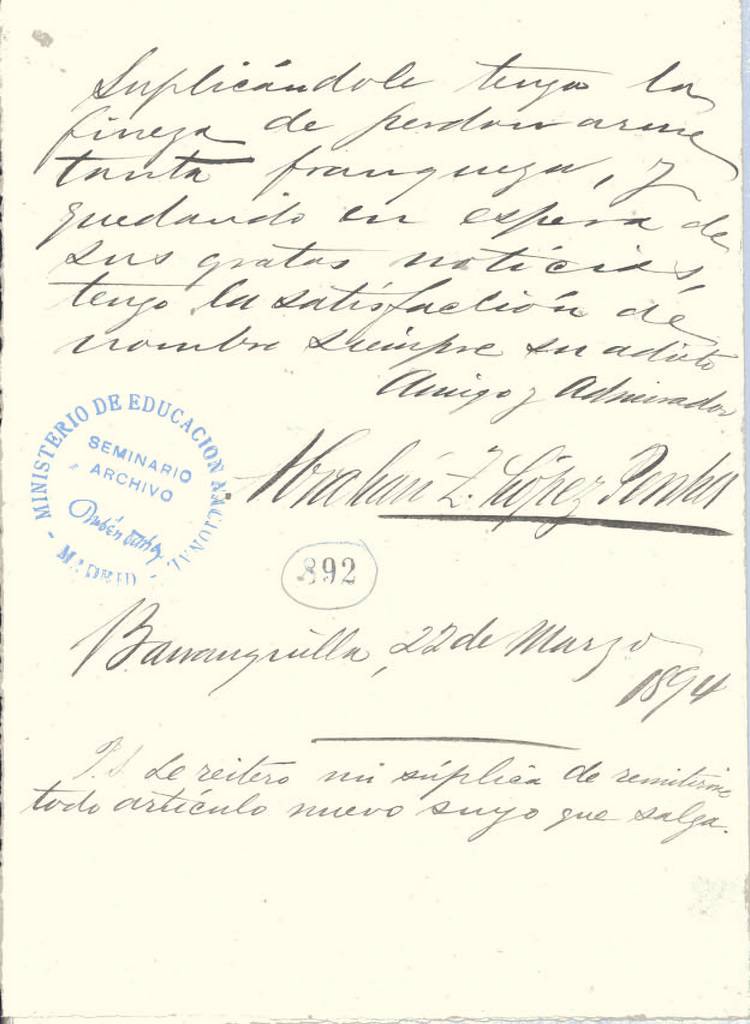 Suplicándole tenga la
fineza de perdonarme
tanta franqueza, y
quedando en espera de
sus gratas noticias,
tengo la satisfacción de
nombre siempre su adicto
Amigo y Admirador
Abraham Z. López Penha
MINISTERIO DE EDUCACION NACIONAL
SEMINARIO
ARCHIVO
Rubén Darío
- MADRID -
892
Barranquilla, 22 de Marzo
1894
P.S. Le reitero mi súplica de remitirme
todo artículo nuevo suyo que salga.